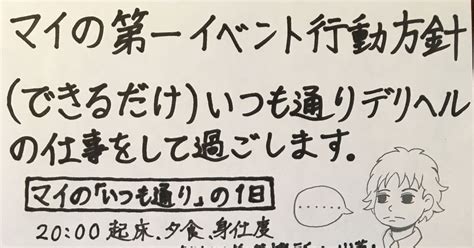 マイの第一イベント行動方針
(できるだけ)いつも通りデリヘル
の仕事をして過ごします。
マイの「いつも通り」の1日
……
20:00 起床、夕食、身仕度